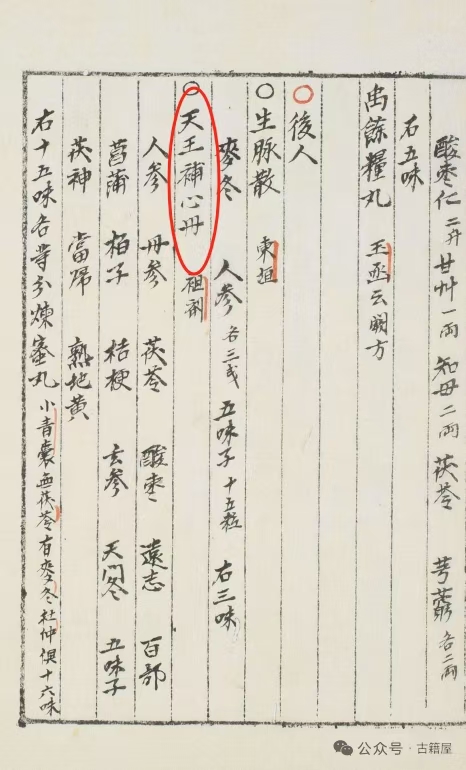 酸棗仁二升 甘艸一兩 知母二兩 茯苓 芎藭各二兩
右五味
禹餘糧丸 王丞云闕方
○後人
○生脉散 東垣
麥冬 人參各三戔 五味子十五粒 右三味
○天王補心丹 祖劑
人參 丹參 茯苓 酸棗 遠志 百部
菖蒲 栢子 桔梗 玄參 天門冬 五味子
茯神 當歸 熟地黃
右十五味各等分煉蜜丸 小青囊無茯苓有麥冬杜仲俱十六味
公众号·古籍屋